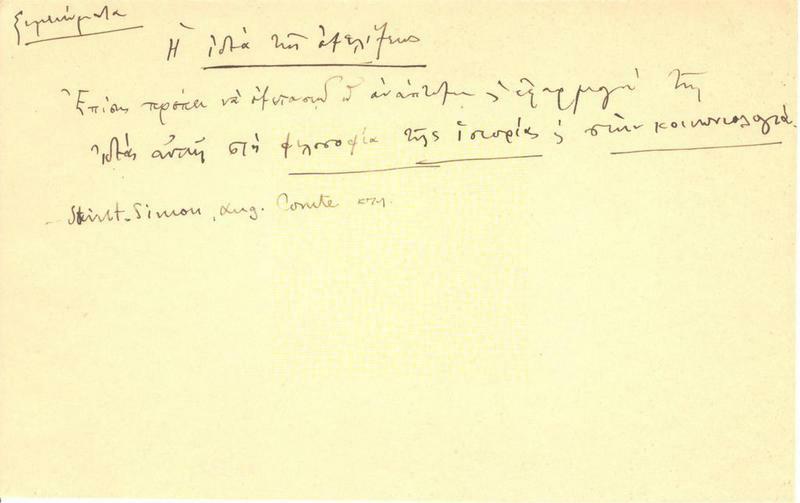 Σημειώματα
Ἡ ἰδέα τῆς ἐξελίξεως
Ἐπίσης πρέπει νὰ ἐξετασθῇ ἡ ἀνάπτυξη κ ἐφαρμογὴ τῆς
ἰδέας αὐτῆς στὴ φιλοσοφία τῆς ἱστορίας κ στὴν κοινωνιολογία.
Saint-Simon, Aug. Comte κτλ.